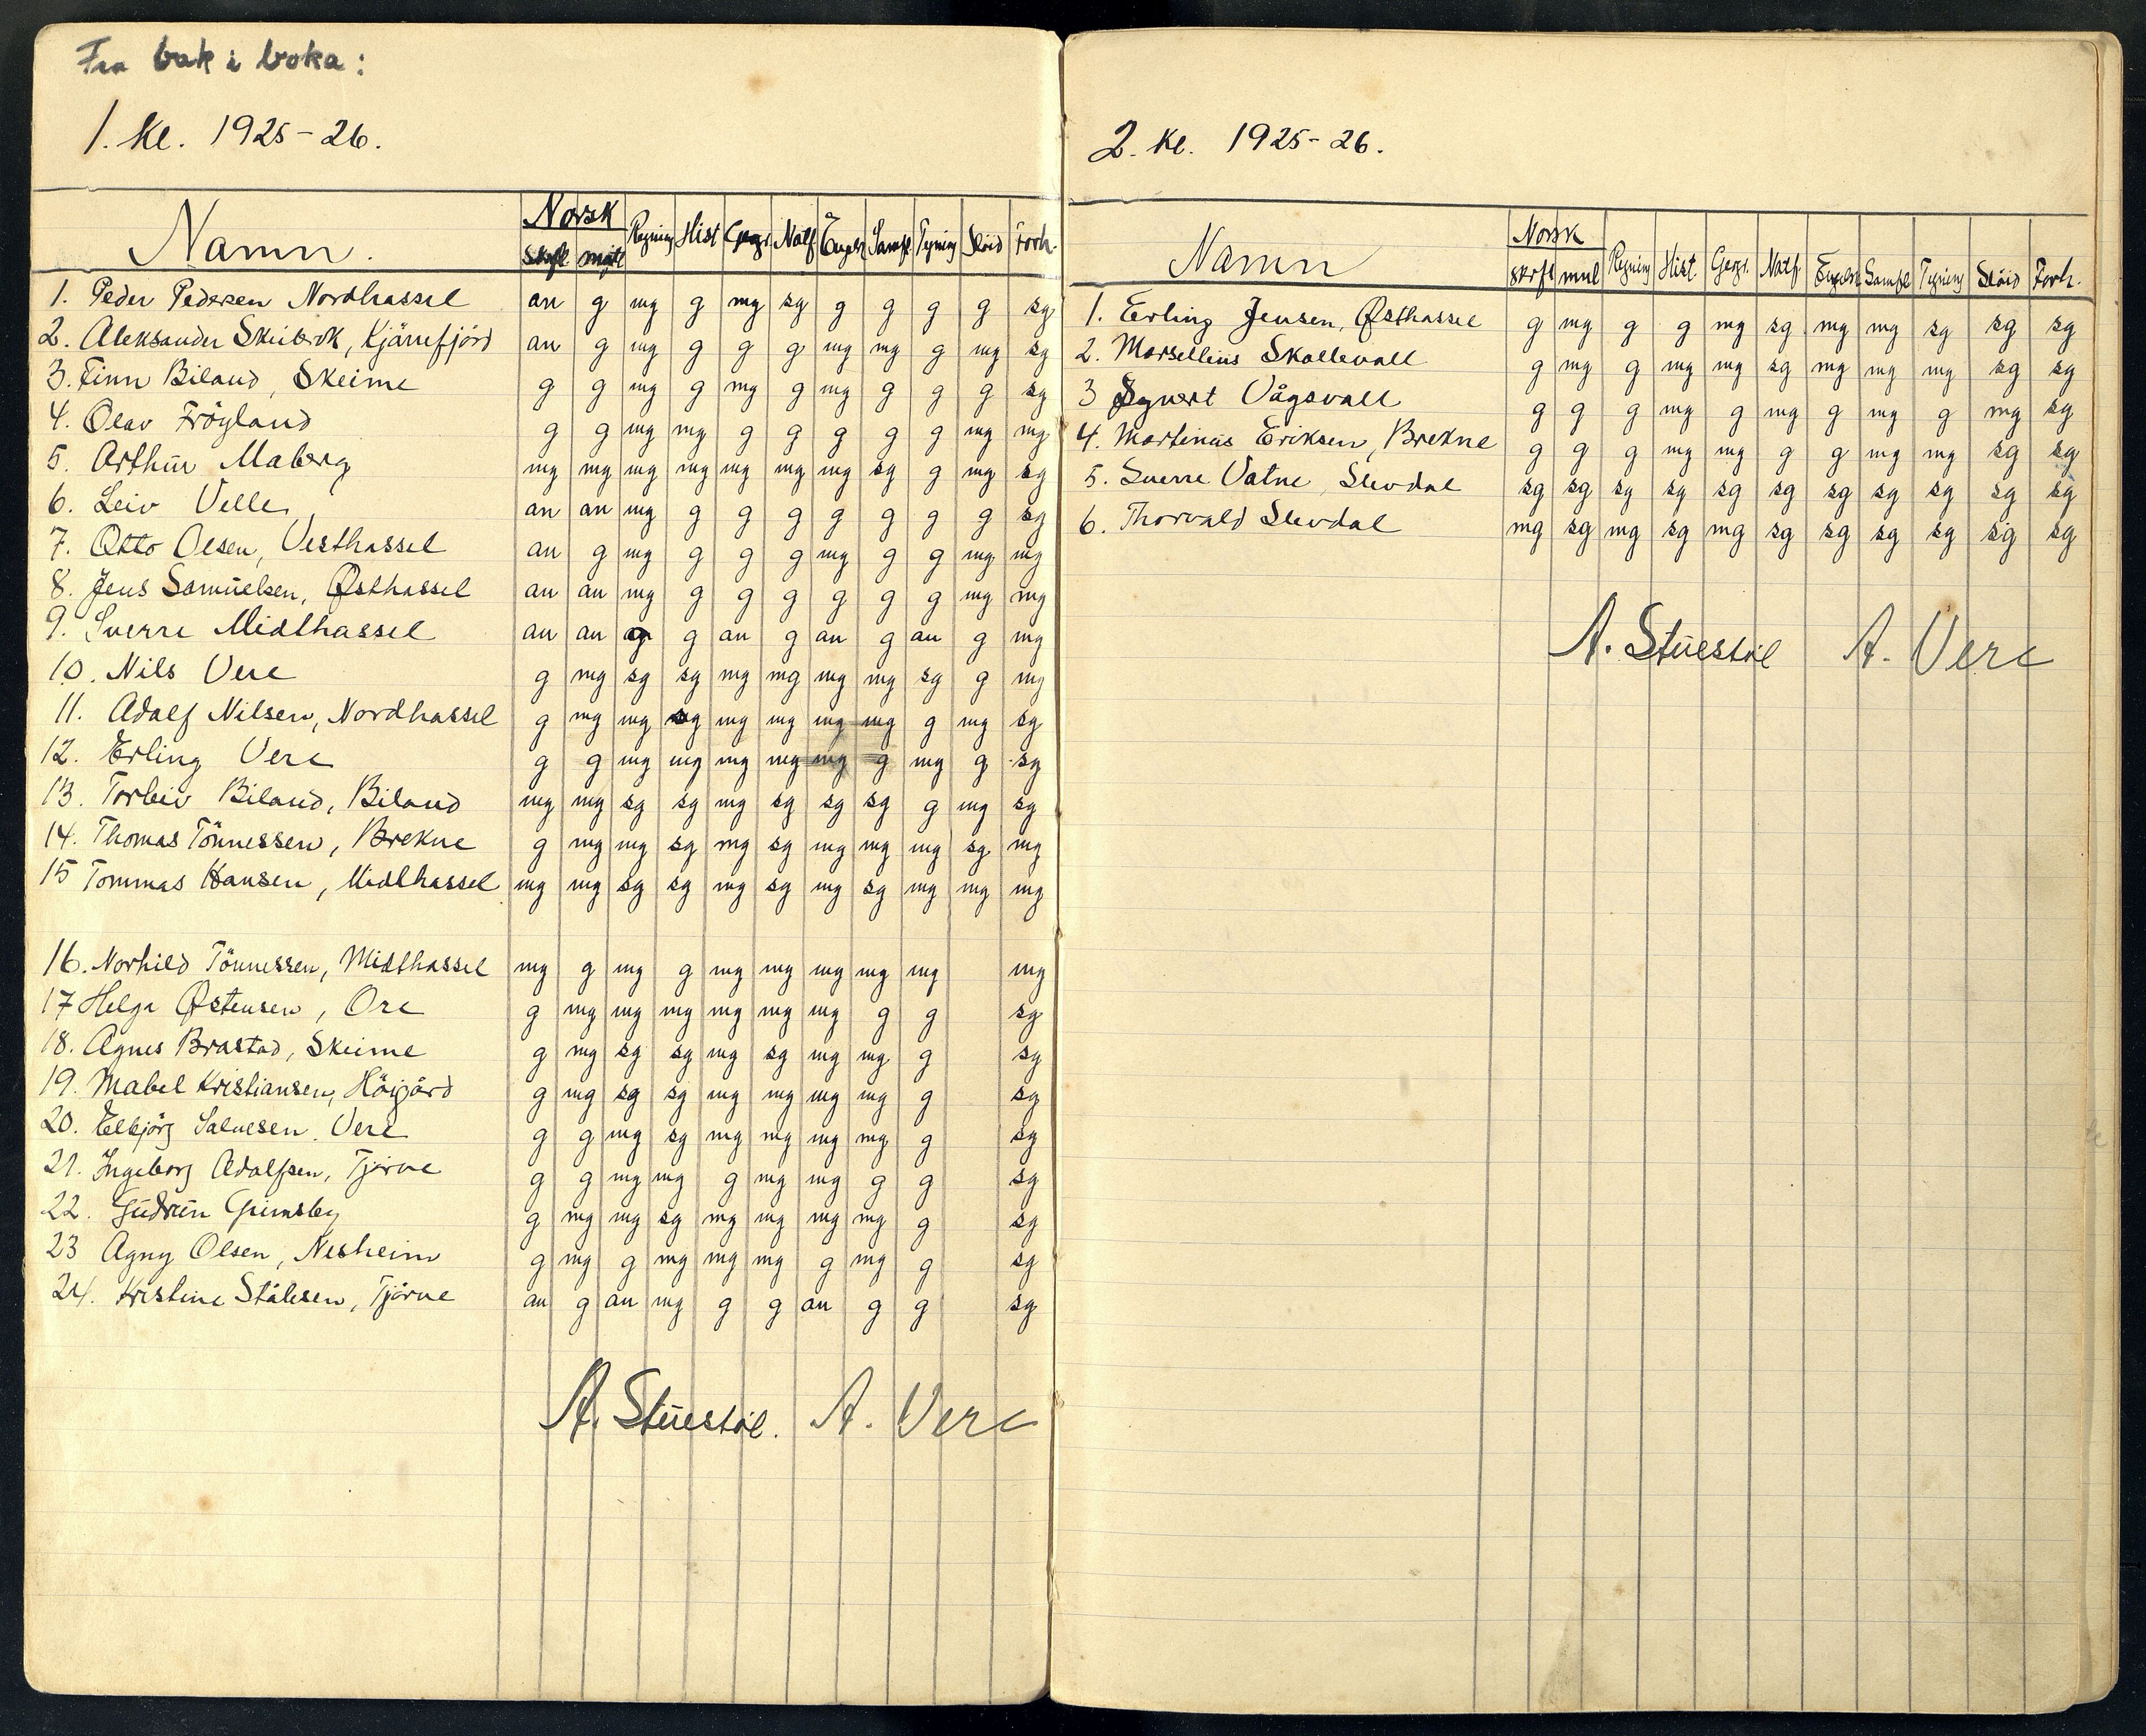 Fra bak i boka:
1. kl. 1925-26.
Namn. Norsk Regning Hist Geogr. Natf Engelsk Samf. Tegning Slöid Forh.
skrftl mùtl
1. Peder Pedersen Nordhassel an g mg g mg sg g g g g sg
2. Aleksander Skeibrok, Kjörrefjörd an g mg g g g mg mg g mg sg
3. Finn Biland, Skeime g g mg g mg g mg g g g sg
4. Olav Fröyland g g mg mg g g g g g mg mg
5. Arthùr Maberg mg mg mg mg mg mg mg sg g mg sg
6. Leiv Velle an an mg g g g g g g g sg
7. Otto Olsen, Vesthassel an g mg g g g mg g g mg mg
8. Jens Samùelsen, Østhassel an an mg g g g g g g mg mg
9. Sverre Midthassel an an g g an g an g an g mg
10. Nils Vere g mg sg sg mg mg mg mg sg g mg
11. Adolf Nilsen, Nordhassel g mg mg sg mg mg mg mg g mg sg
12. Erling Vere g g mg mg mg mg mg g mg g sg
13. Torleiv Biland, Biland mg mg sg sg mg sg sg sg g mg sg
14. Thomas Tönnessen, Brekne g mg mg sg mg sg mg mg mg sg mg
15 Tommas Hansen, Midthassel mg mg sg sg mg sg mg sg mg mg mg
16. Norhild Tönnessen, Midthassel mg g mg g mg mg mg mg mg mg
17 Helga Østensen, Ore g mg mg mg mg mg mg g g sg
18. Agnes Brastad, Skeime g mg sg sg mg sg mg mg g sg
19. Mabel Kristiansen, Höigård g mg sg sg mg mg mg mg g sg
20. Elbjörg Salvesen, Vere g g mg sg mg mg mg mg g sg
21. Ingeborg Adolfsen, Tjörve g g mg mg g mg mg g g sg
22. Gùdrùn Grimsby g mg mg sg mg mg mg mg g sg
23 Agny Olsen, Nesheim g mg g mg mg mg g mg g sg
24. Kristine Stålesen, Tjörve an g an mg g g an g g sg
A. Stùestöl. A. Vere
2. kl. 1925-26.
Namn Norsk Regning Hist. Geogr. Natf. Engelsk Samf Tegning Slöid Forh.
skrftl mùtl
1. Erling Jensen, Østhassel g mg g g mg sg mg mg sg sg sg
2. Marsellius Skollevoll g mg g mg mg sg mg mg mg sg sg
3 Sÿvert Vågsvoll g g g mg g mg g mg g mg sg
4. Martinùs Eriksen, Brekne g g g mg mg g g mg mg sg sg
5. Sverre Vatne, Slevdal sg sg sg sg sg sg sg sg sg sg sg
6. Thorvald Slevdal mg sg mg sg mg sg sg sg sg sg sg
A. Stùestöl A. Vere